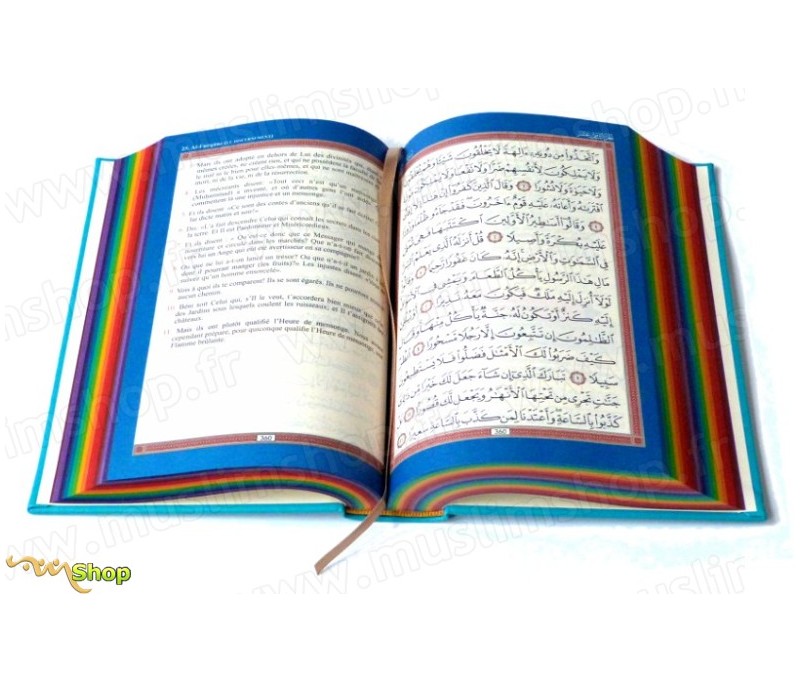 25. Al-Furqâne
3 Mais ils ont adopté en dehors de Lui des divinités qui,
mêmes créées, ne créent rien, et qui ne possèdent la faculté
le mal ni le bien pour elles-mêmes, et qui ne sont
mort, ni de la vie, ni de la résurrection.
Les mécréants disent: «Tout ceci n'est qu'un
(Muhammad) a inventé, et où d'autres gens l'ont
commettent là une injustice et un mensonge.
Et ils disent: «Ce sont des contes d'anciens qu'il se fait
lui dicte matin et soir!»
Dis: «L'a fait descendre Celui qui connaît les secrets dans les
la terre. Et Il est Pardonneur et Miséricordieux.
Et ils disent: «Qu'est-ce donc que ce Messager qui
nourriture et circule dans les marchés? Que n'a-t-on fait
vers lui un Ange qui eût été avertisseur en sa compagnie?
Ou que ne lui a-t-on lancé un trésor? Ou que n'a-t-il un jardin
dont il pourrait manger (les fruits)?». Les injustes disent: «Vous ne
suivez qu'un homme ensorcelé».
9 Vois à quoi ils te comparent! Ils se sont égarés. Ils ne pourront
aucun chemin.
10 Béni soit Celui qui, s'Il le veut, t'accordera bien mieux que cela
des Jardins sous lesquels coulent les ruisseaux; et Il t'assignera
châteaux.
11 Mais ils ont plutôt qualifié l'Heure de mensonge.
cependant préparé, pour quiconque qualifie l'Heure de mensonge,
Flamme brûlante.
360
وَٱتَّخَذُوا۟ مِن دُونِهِۦٓ ءَالِهَةً لَّا يَخْلُقُونَ شَيْـًٔا وَهُمْ
وَلَا يَمْلِكُونَ لِأَنفُسِهِمْ ضَرًّا وَلَا نَفْعًا
وَلَا حَيَوٰةً وَلَا نُشُورًا ٣ وَقَالَ ٱلَّذِينَ كَفَرُوٓا۟ إِنْ هَٰذَآ
ٱفْتَرَىٰهُ وَأَعَانَهُۥ عَلَيْهِ قَوْمٌ ءَاخَرُونَ فَقَدْ جَآءُو
٤ وَقَالُوٓا۟ أَسَٰطِيرُ ٱلْأَوَّلِينَ ٱكْتَتَبَهَا فَهِىَ
عَلَيْهِ بُكْرَةً وَأَصِيلًا ٥ قُلْ أَنزَلَهُ ٱلَّذِى يَعْلَمُ
فِى ٱلسَّمَٰوَٰتِ وَٱلْأَرْضِ إِنَّهُۥ كَانَ غَفُورًا رَّحِيمًا
مَالِ هَٰذَا ٱلرَّسُولِ يَأْكُلُ ٱلطَّعَامَ وَيَمْشِى فِى
لَوْلَآ أُنزِلَ إِلَيْهِ مَلَكٌ فَيَكُونَ مَعَهُۥ نَذِيرًا ٧
إِلَيْهِ كَنزٌ أَوْ تَكُونُ لَهُۥ جَنَّةٌ يَأْكُلُ مِنْهَا وَقَالَ
ٱلظَّٰلِمُونَ إِن تَتَّبِعُونَ إِلَّا رَجُلًا مَّسْحُورًا ٨
كَيْفَ ضَرَبُوا۟ لَكَ ٱلْأَمْثَٰلَ فَضَلُّوا۟ فَلَا يَسْتَطِيعُونَ
سَبِيلًا ٩ تَبَارَكَ ٱلَّذِىٓ إِن شَآءَ جَعَلَ لَكَ خَيْرًا مِّن
جَنَّٰتٍ تَجْرِى مِن تَحْتِهَا ٱلْأَنْهَٰرُ وَيَجْعَل لَّكَ قُصُورًۢا ١٠
كَذَّبُوا۟ بِٱلسَّاعَةِ وَأَعْتَدْنَا لِمَن كَذَّبَ بِٱلسَّاعَةِ سَعِيرًا ١١
360
Shop
www.muslimshop.fr